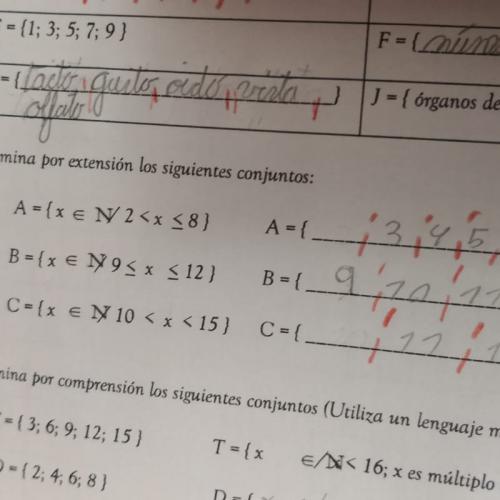 = {1; 3; 5; 7; 9}
F = {
= { tacto, gusto, oido, vista, }
olfato
J = { órganos de
mina por extensión los siguientes conjuntos:
A = {x ∈ N/ 2 < x ≤ 8} A = { 3, 4, 5,
B = {x ∈ N/ 9 ≤ x ≤ 12} B = { 9, 10, 11
C = {x ∈ N/ 10 < x < 15} C = { 11,
mina por comprensión los siguientes conjuntos (Utiliza un lenguaje m
= { 3; 6; 9; 12; 15} T = {x ∈/N< 16; x es múltiplo
= { 2; 4; 6; 8}